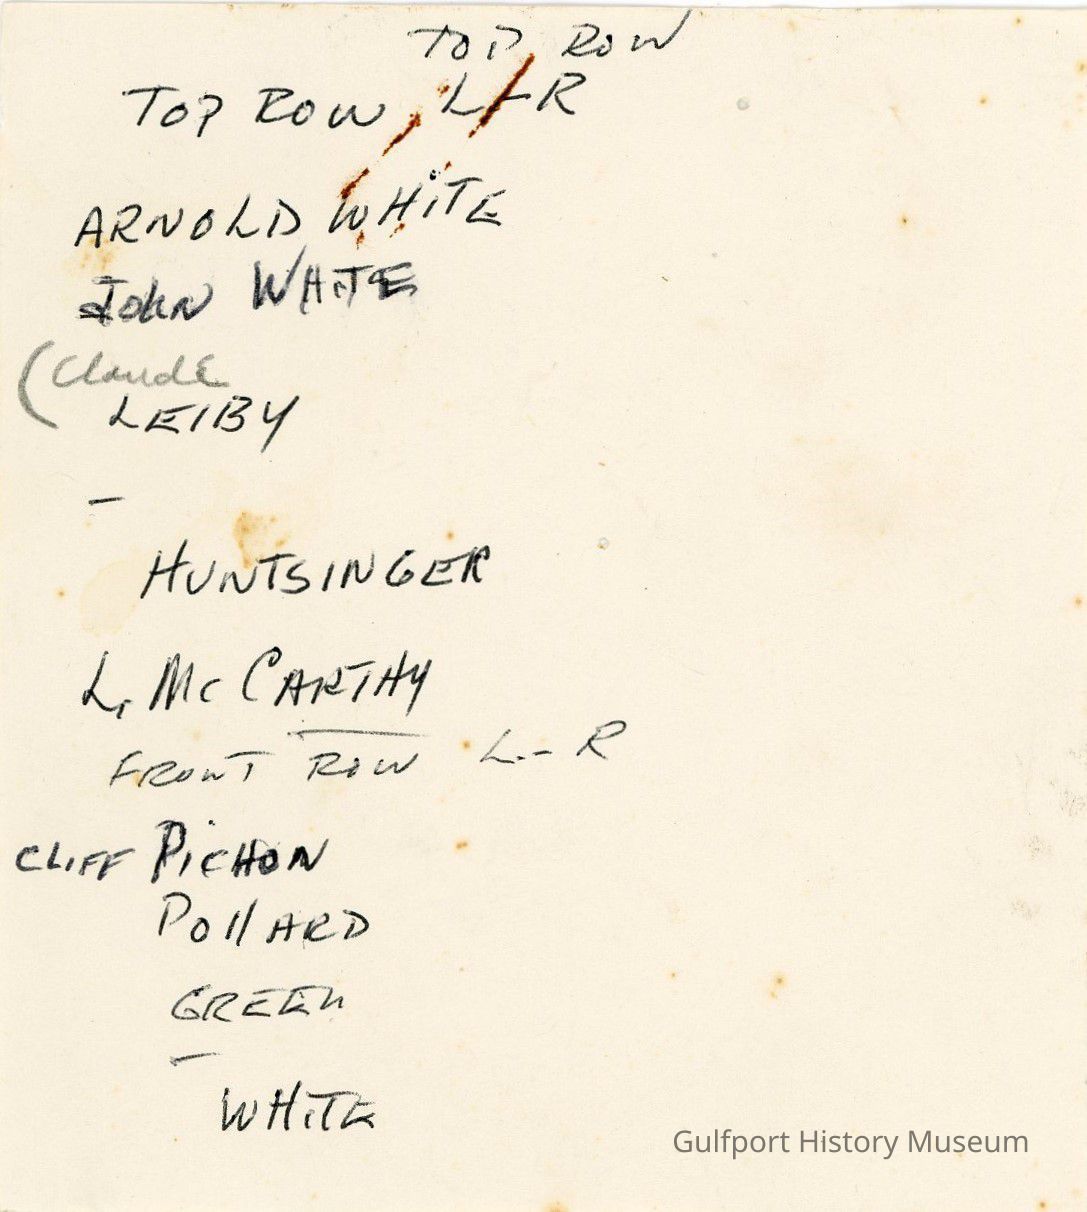 TOP ROW
TOP ROW L-R
ARNOLD WHITE
JOHN WHITE
(Claude
LEIBY
-
HUNTSINGER
L. McCARTHY
FRONT ROW L-R
CLIFF PICHON
POllARD
GREEN
-
WHITE
Gulfport History Museum